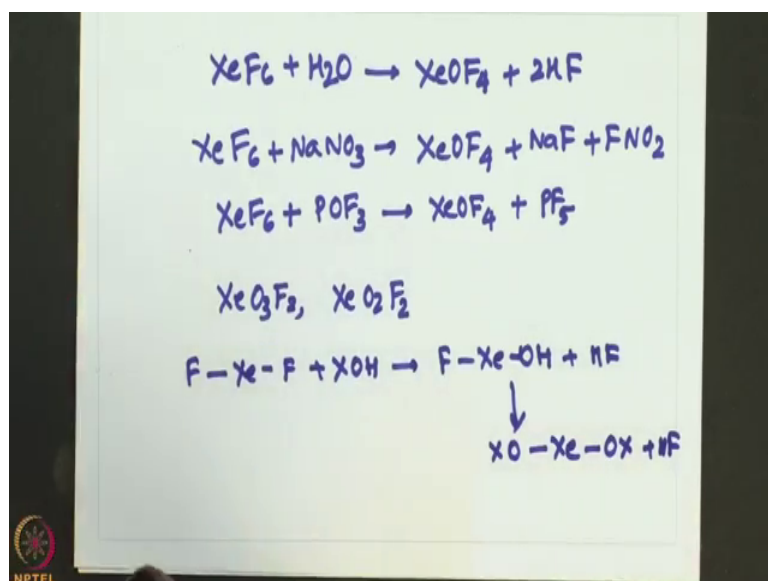 XeF6 + H2O → XeOF4 + 2HF
XeF6 + NaNO3 → XeOF4 + NaF + FNO2
XeF6 + POF3 → XeOF4 + PF5
XeO3F2, XeO2F2
F - Xe - F + XOH → F - Xe - OH + HF
↓
XO - Xe - OX + HF
NPTEL